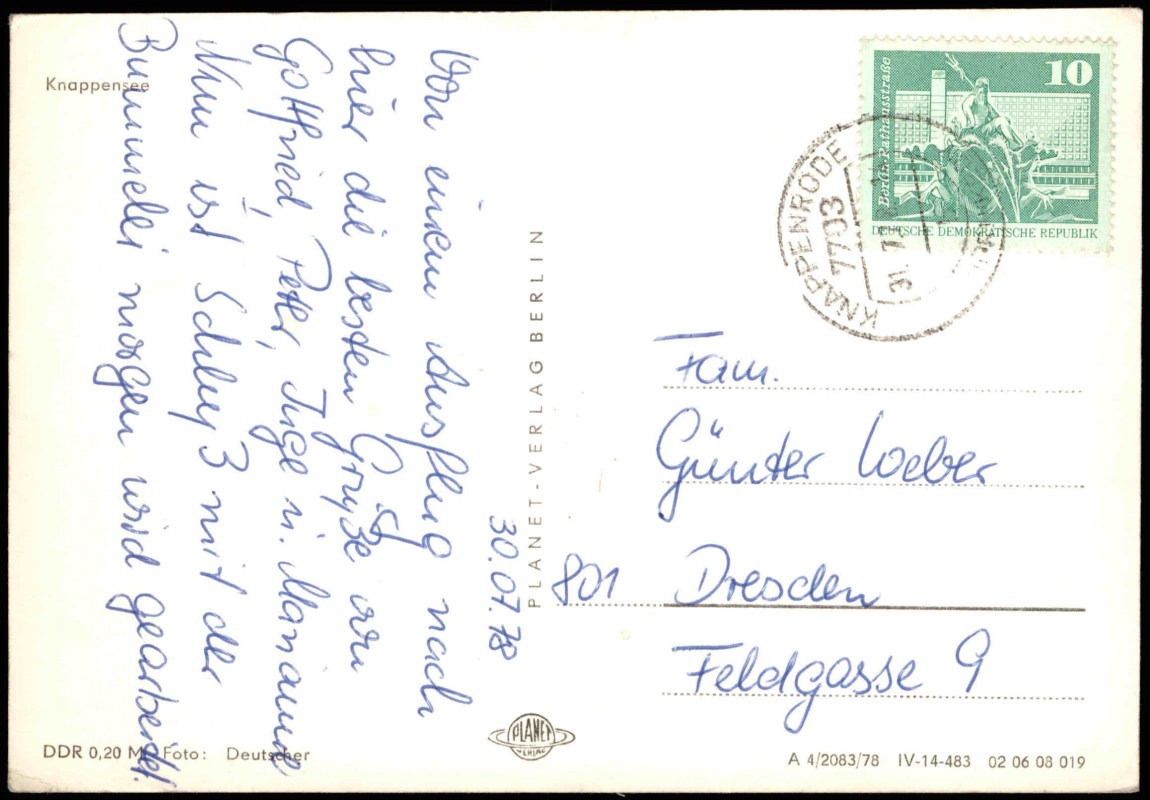 Knappensee
30.07.78
Von einem Ausflug nach
hier die besten Grüße von
Gottfried, Peter, Inge u. Marianne
Nun ist Schluß mit der
Bummelei morgen wird gearbeitet!
PLANET-VERLAG BERLIN
10
Berlin Rathausstraße
DEUTSCHE DEMOKRATISCHE REPUBLIK
KNAPPENRODE
7703
31. 7.
Fam.
Günter Weber
801 Dresden
Feldgasse 9
DDR 0,20 M Foto: Deutscher
PLANET
VERLAG
A 4/2083/78 IV-14-483 02 06 08 019